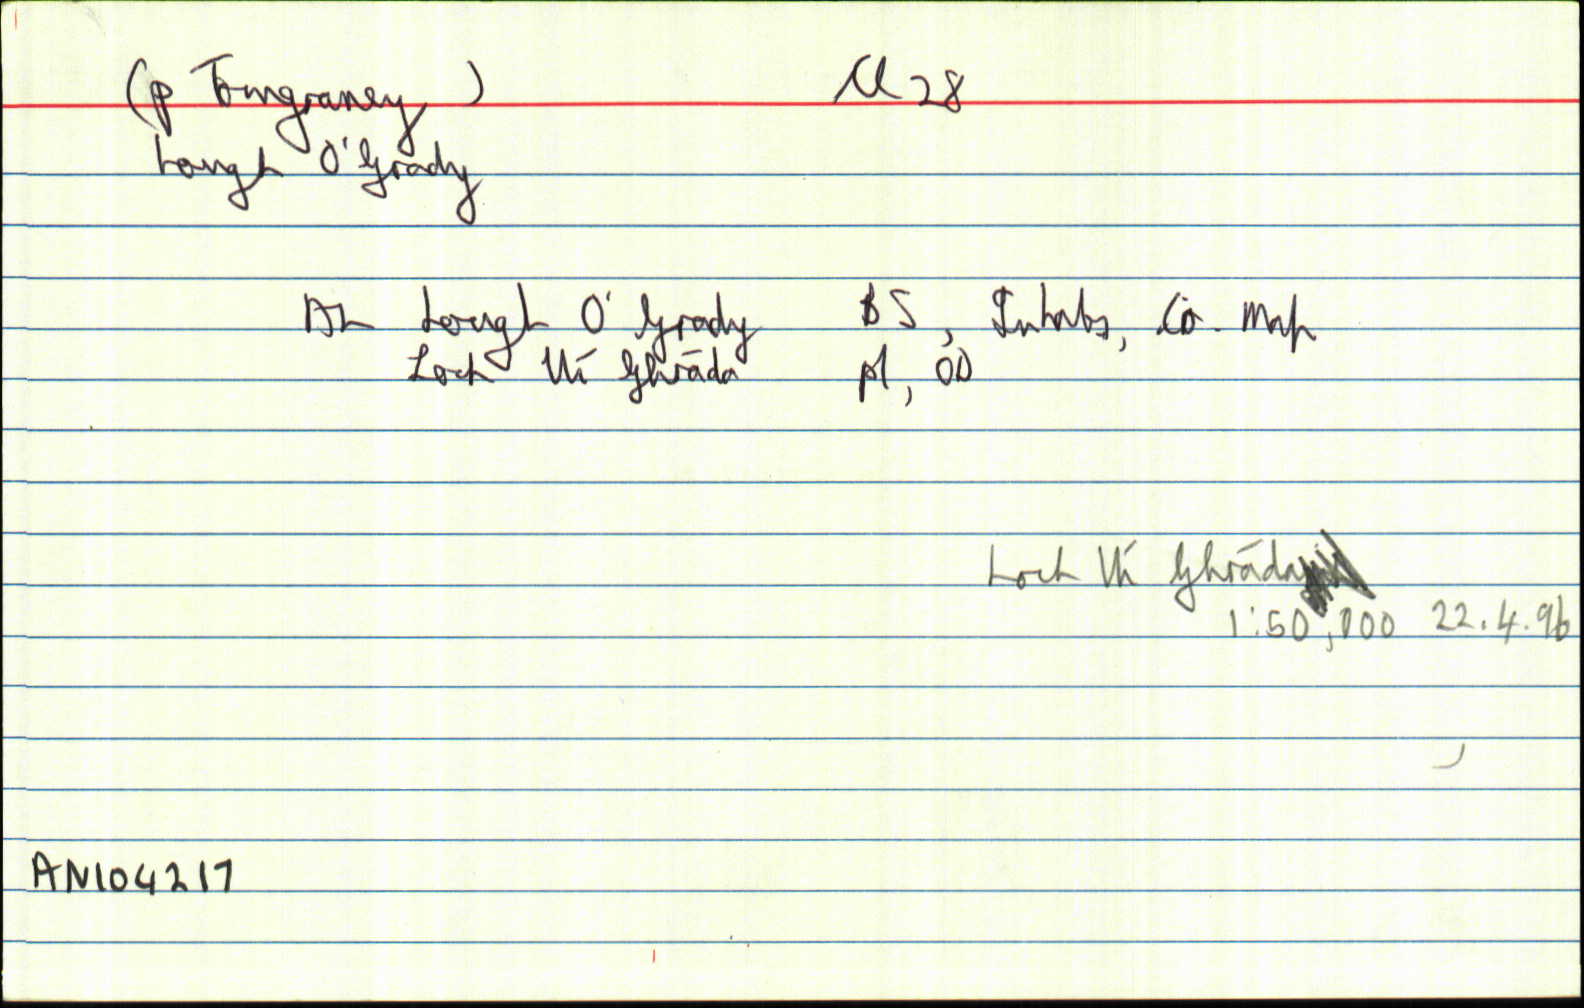 (p Tomgraney ) Cl 28
Lough O'Grady
AL Lough O'Grady BS, Inhabs, Co. Map
Loch Uí Ghráda pl, OD
Loch Uí Ghráda
1:50,000 22.4.96
AN104217